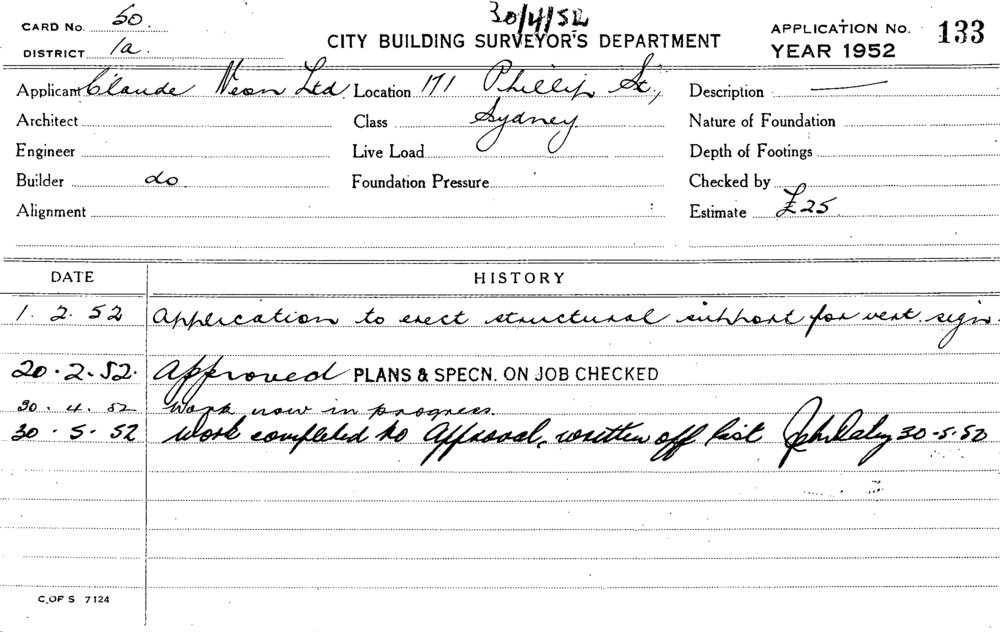 30/4/52
CARD No. 50. APPLICATION No. 133
DISTRICT 1a. CITY BUILDING SURVEYOR'S DEPARTMENT YEAR 1952
Applicant Claude Neon Ltd. Location 171 Phillip St., Description —
Architect Class Sydney. Nature of Foundation
Engineer Live Load Depth of Footings
Builder do Foundation Pressure Checked by
Alignment : Estimate £25.
DATE HISTORY
1. 2. 52 Application to erect structural support for vert. sign.
20. 2. 52. Approved PLANS & SPECN. ON JOB CHECKED
30. 4. 52 Work now in progress.
30. 5. 52 Work completed to Approval, written off list 30-5-52
C. OF S 7124